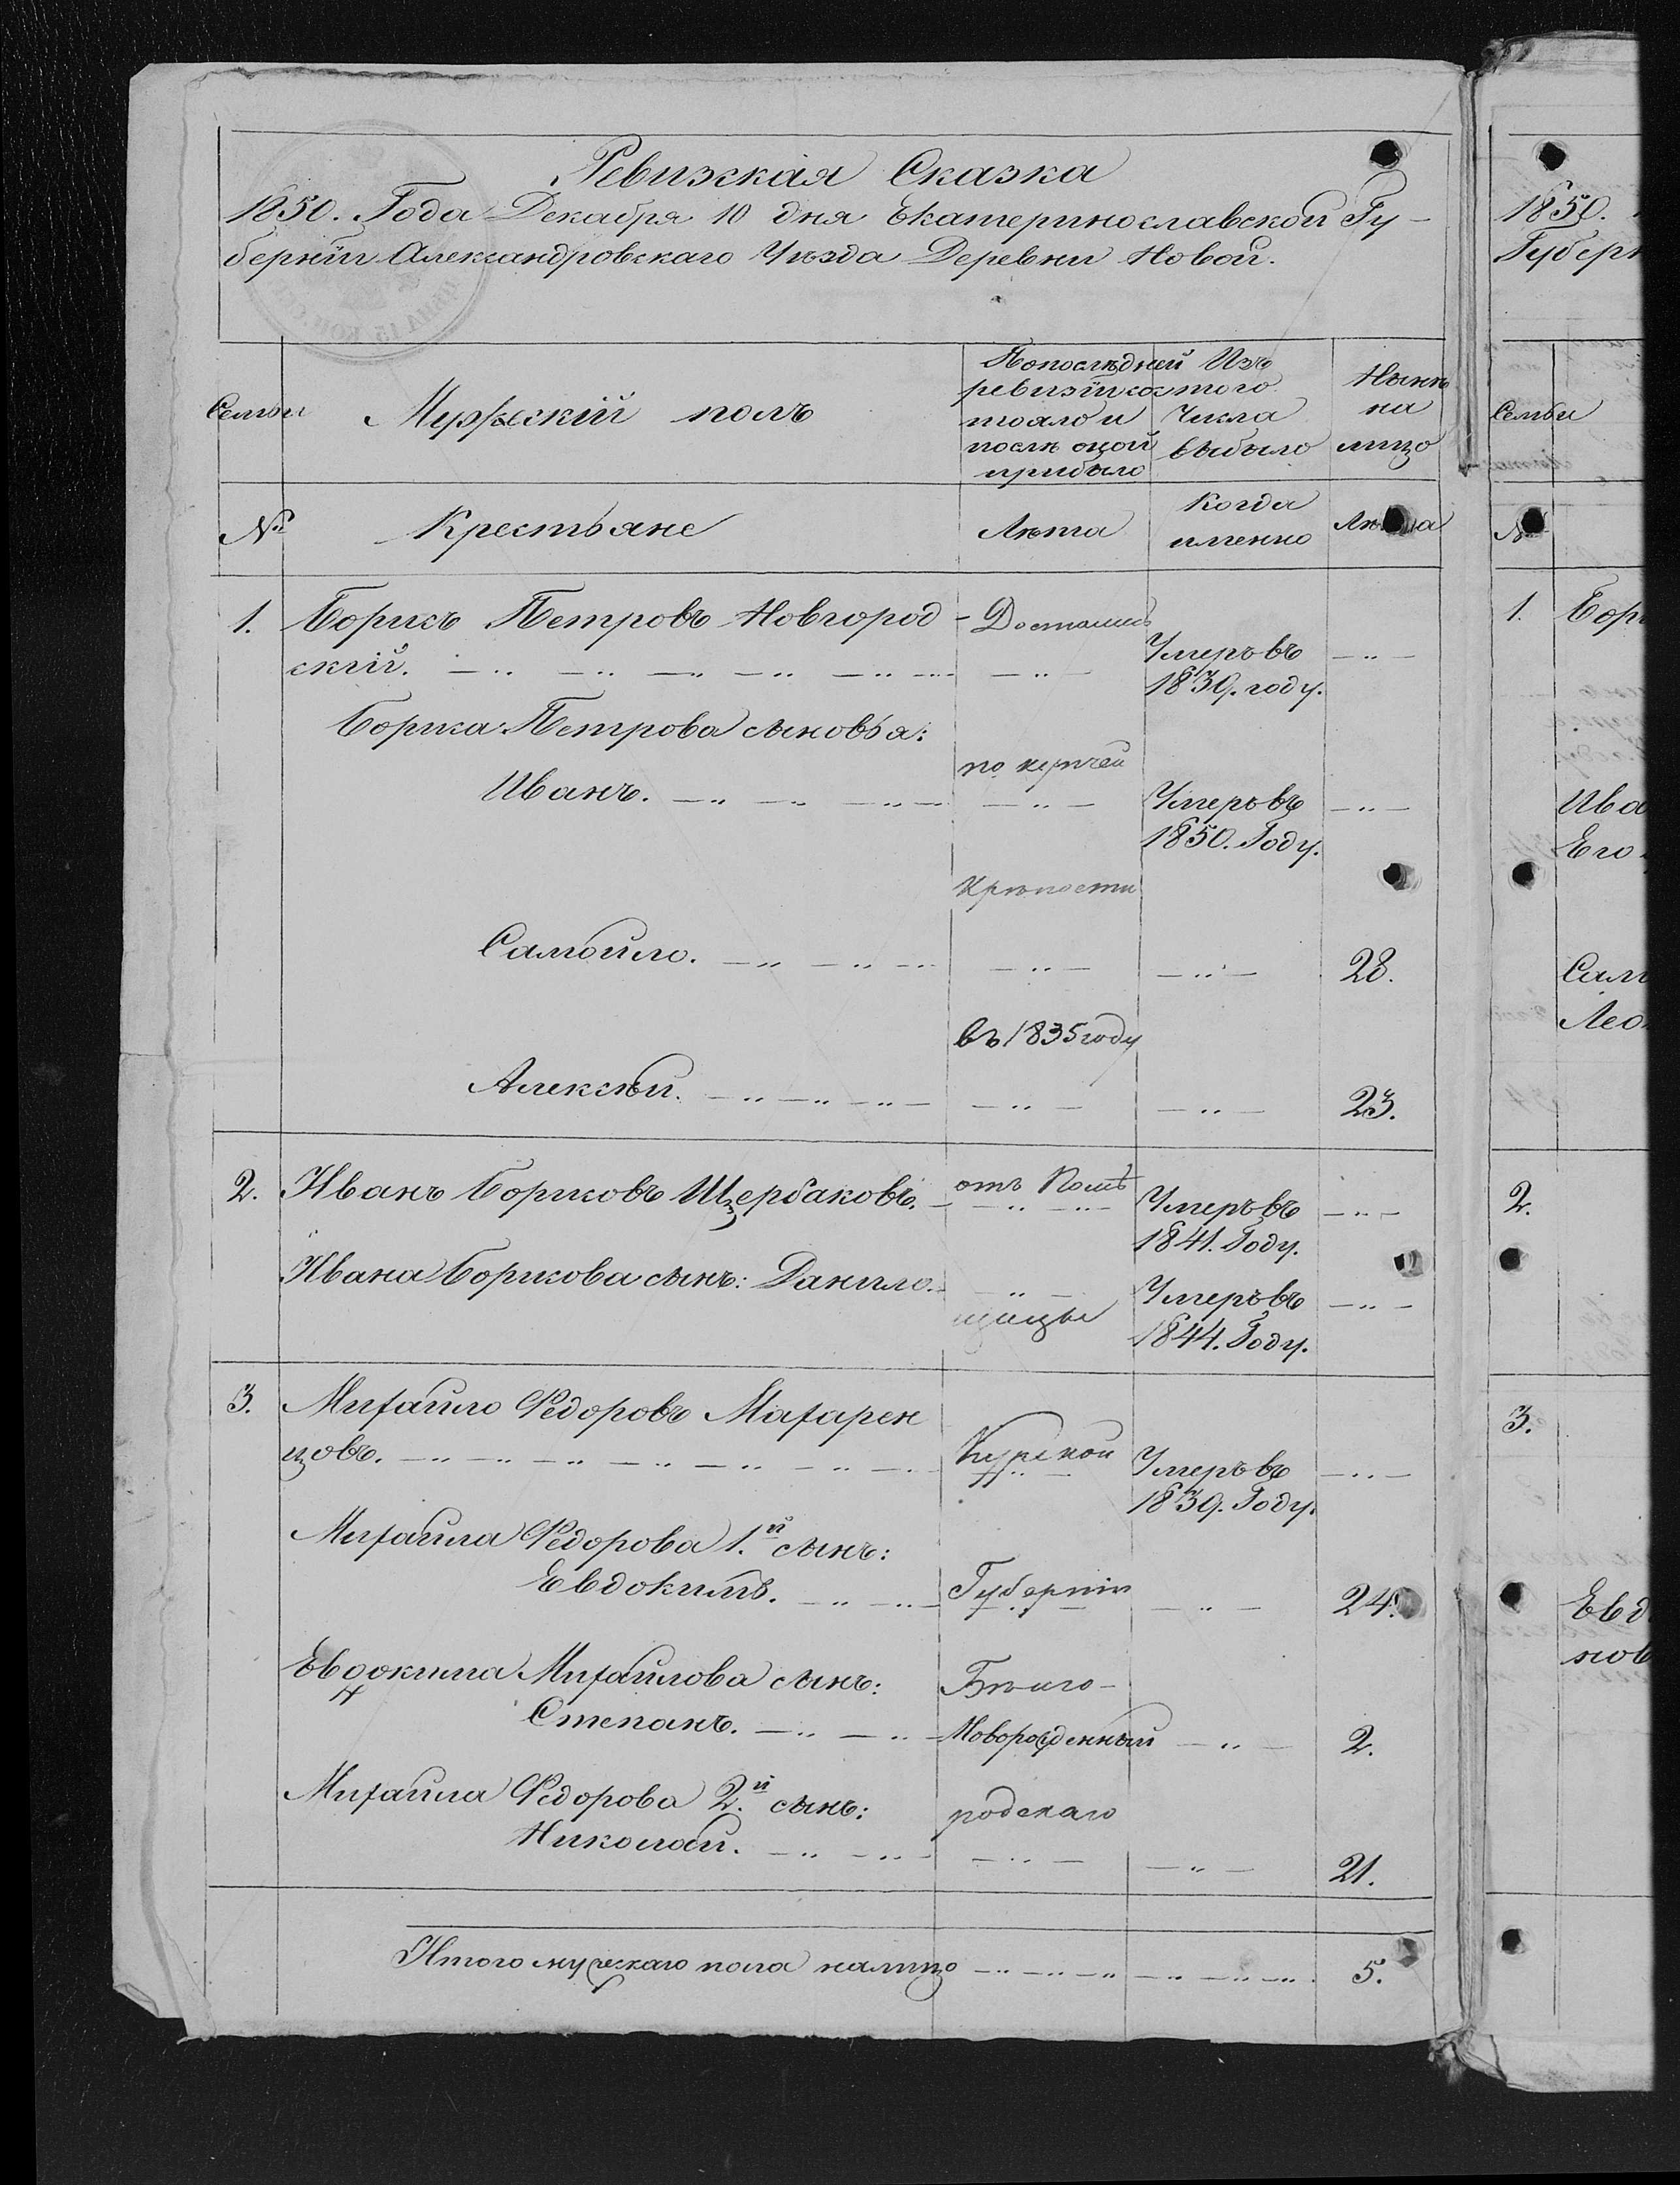 Ревизская Сказка
1850. Года Декабря 10 дня Екатеринославской Гу-
берніи Александровскаго Уѣзда Деревни Новой.
Семьи
Мужескій полъ
Попослѣдней
ревизіи сос
тояло и
послѣ оной
прибыло
Изъ
того
Числа
выбыло
Нынѣ
на
лицо
№
Крестьяне
Лѣта
Когда
именно
1. Борисъ Петровъ Новгород- Достались
скій. Умеръ въ
1839. году.
Бориса Петрова сыновья:
по купчей
Иванъ. Умеръ въ
1850. Году.
Крѣпости
Самойло. 28.
въ 1835 году
Алексѣй. 23.
2. Иванъ Борисовъ Щербаковъ. отъ Умеръ въ
1841. Году.
Ивана Борисова сынъ: Данило. Умеръ въ
1844. Году.
3. Михайло Федоровъ Махарен
цовъ. Курской Умеръ въ
1839. Году.
Михайла Федорова 1.й сынъ:
Евдокимъ. Губерніи 24.
Евдокима Михайлова сынъ: Бѣлго-
Степанъ. Новорожденный 2.
Михайла Федорова 2.й сынъ: родскаго
Николай. 21.
Итого мужескаго пола налицо 5.
1850.
Губерн
Семьи
№
1. Бори
Ива
Его
Сам
Лео
2.
3.
Евд
мов